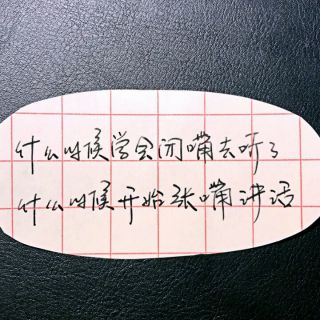 什么时候学会闭嘴去听了
什么时候开始张嘴讲话